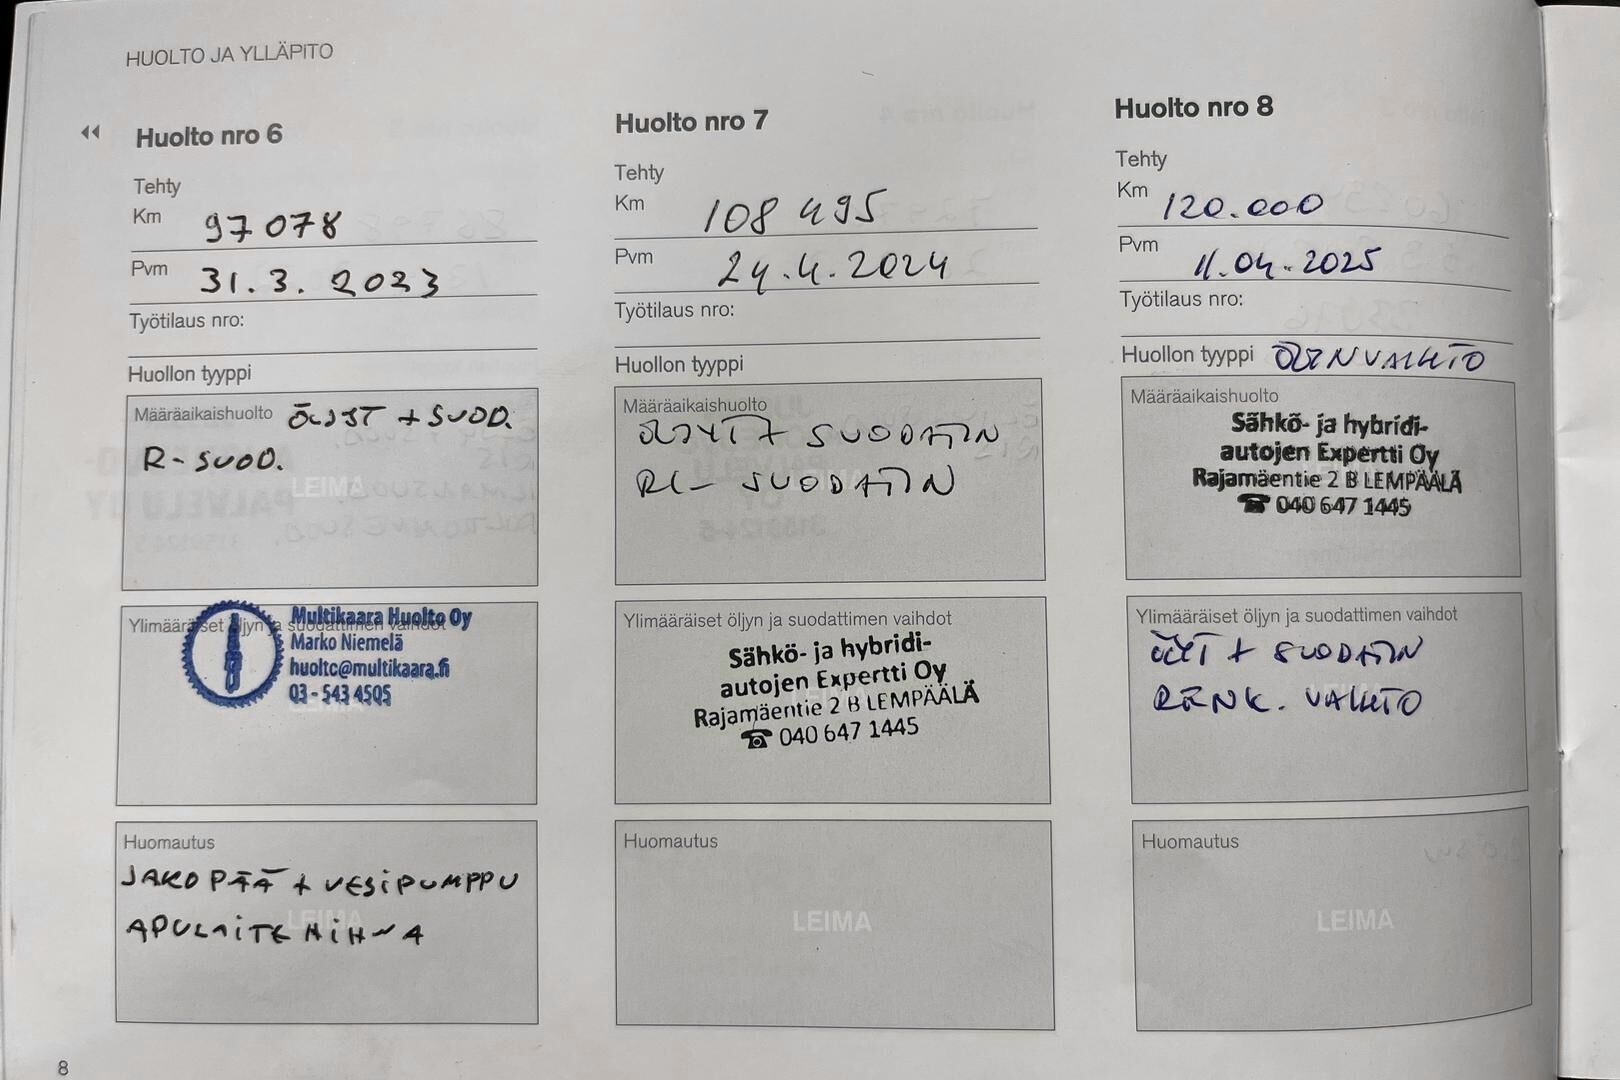 HUOLTO JA YLLÄPITO
Huolto nro 6
Tehty
Km 97 078
Pvm 31.3.2023
Työtilaus nro:
Huollon tyyppi
Määräaikaishuolto ÖLJYT + SUOD.
R-SUOD.
LEIMA
Ylimääräiset öljyn ja suodattimen vaihdot
Multikaara Huolto Oy
Marko Niemelä
huolto@multikaara.fi
03 - 543 4505
LEIMA
Huomautus
JAKOPÄÄ + VESIPUMPPU
APULAITE HIHNA
LEIMA
Huolto nro 7
Tehty
Km 108 495
Pvm 24.4.2024
Työtilaus nro:
Huollon tyyppi
Määräaikaishuolto
ÖLJYT + SUODATIN
RL- SUODATIN
Ylimääräiset öljyn ja suodattimen vaihdot
Sähkö- ja hybridi-
autojen Expertti Oy
Rajamäentie 2 B LEMPÄÄLÄ
☎ 040 647 1445
Huomautus
LEIMA
Huolto nro 8
Tehty
Km 120.000
Pvm 11.04.2025
Työtilaus nro:
Huollon tyyppi
Määräaikaishuolto
Sähkö- ja hybridi-
autojen Expertti Oy
Rajamäentie 2 B LEMPÄÄLÄ
☎ 040 647 1445
Ylimääräiset öljyn ja suodattimen vaihdot
+ SUODATIN
RENK. VAIHTO
Huomautus
LEIMA
8